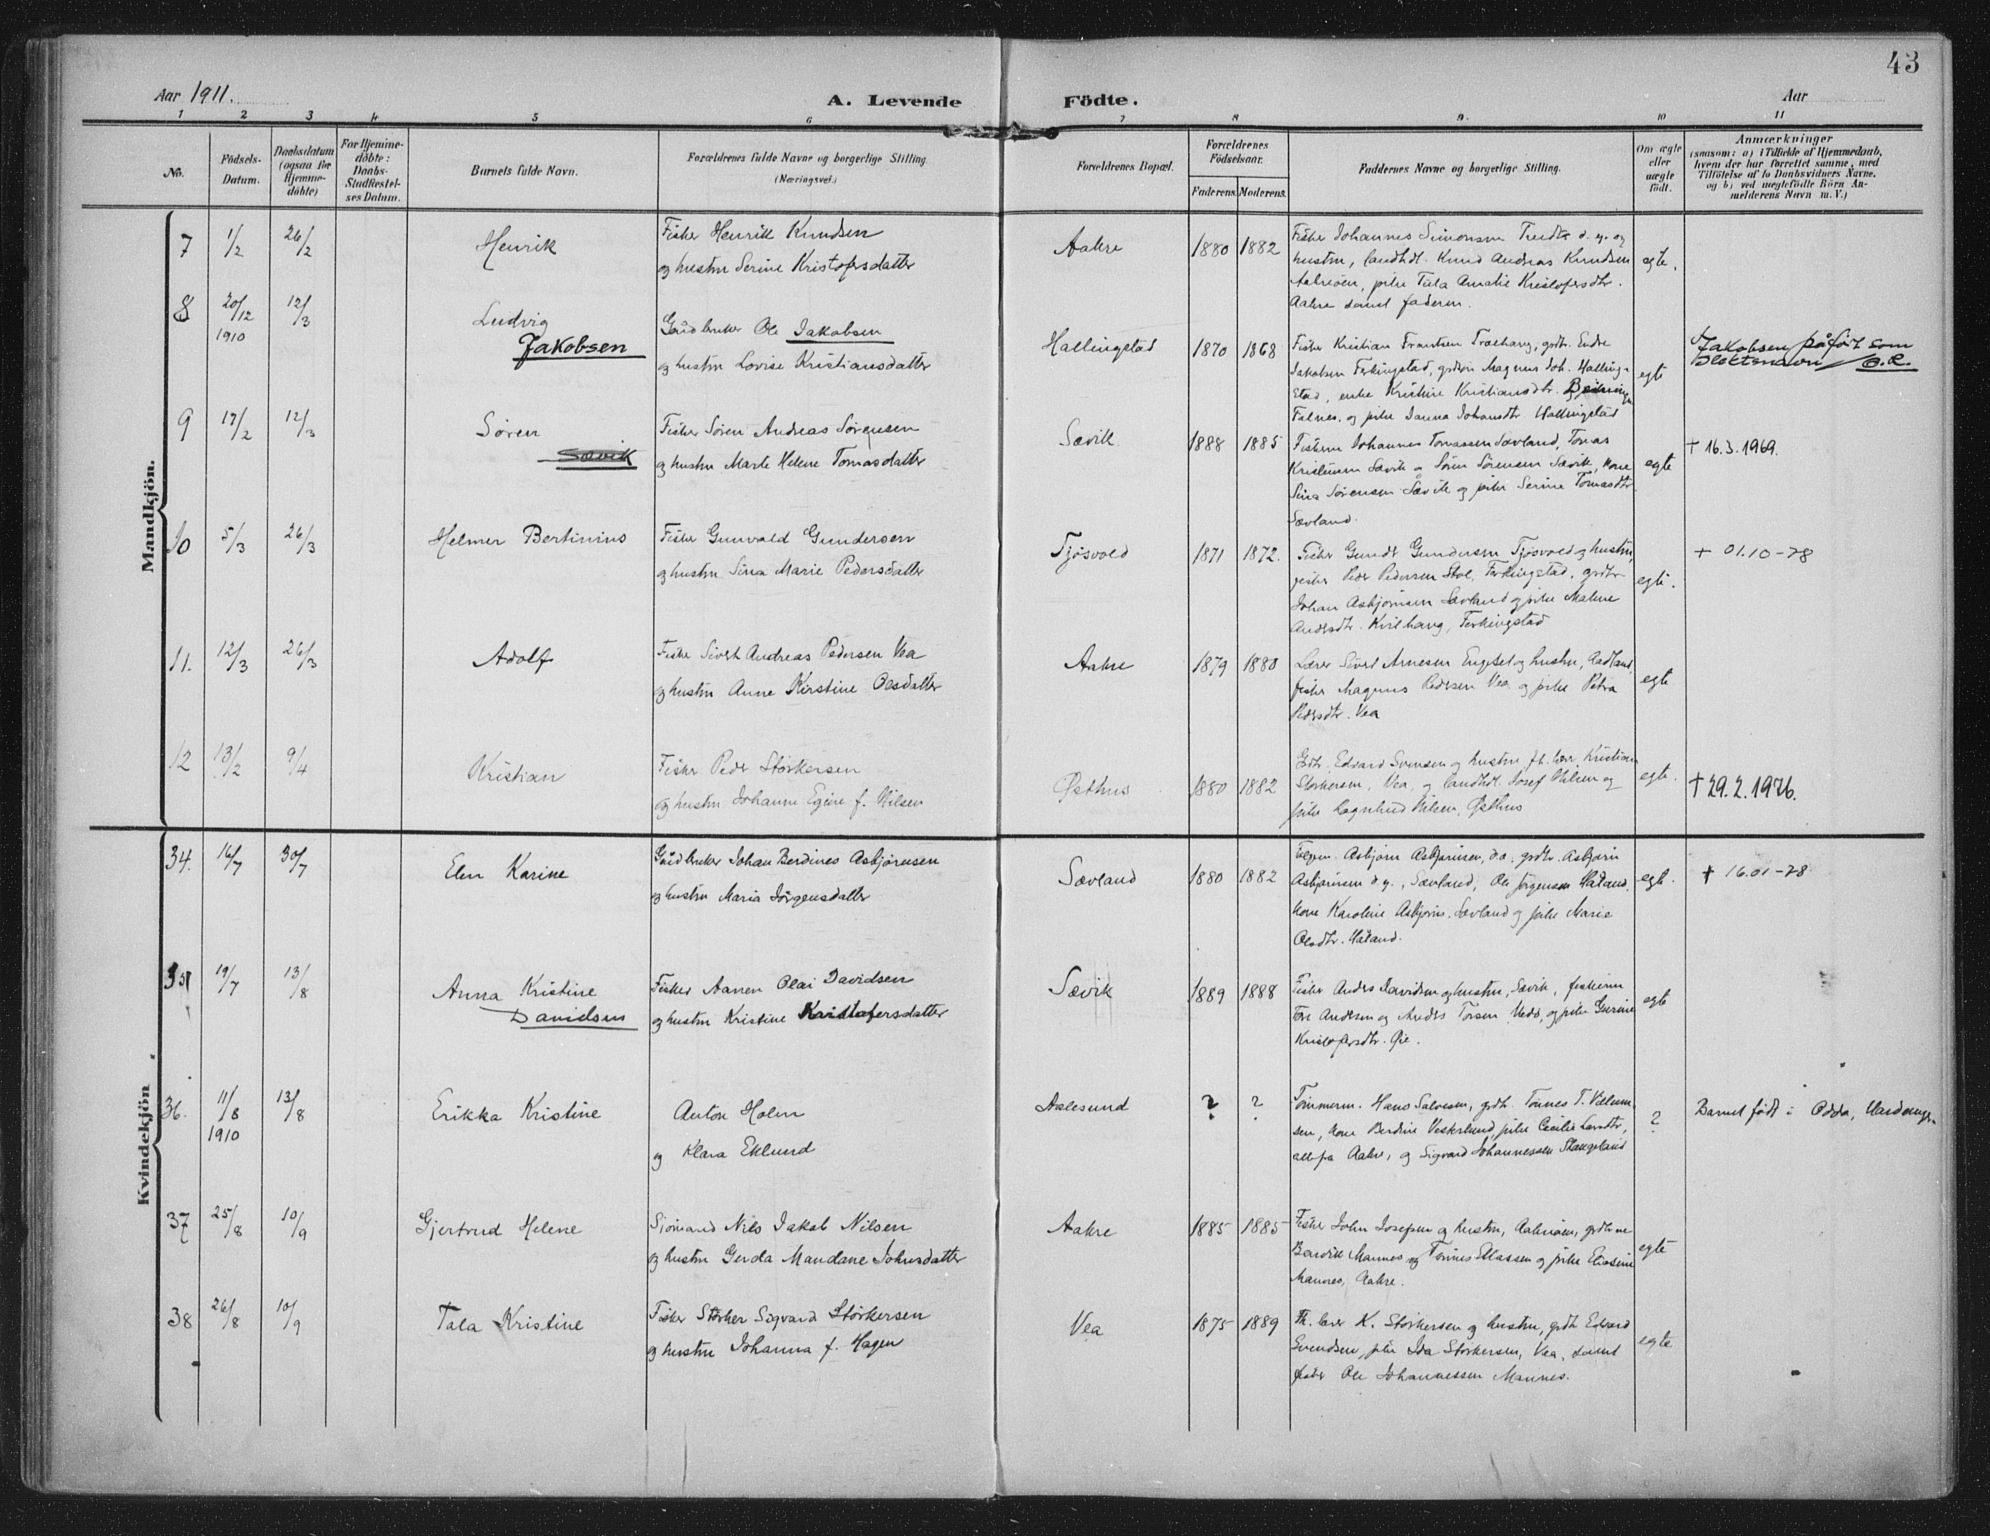 43
Aar 1911.
A. Levende Födte.
Aar
1 2 3 4 5 6 7 8 9. 10 11
No.
Födsels-
Datum.
Daabsdatum
(ogsaa for
Hjemme-
döbte)
For Hjemme-
döbte:
Daabs-
Stadfæstel-
ses Datum.
Barnets fulde Navn.
Forældrenes fulde Navne og borgerlige Stilling
(Næringsvei.)
Forældrenes Bopæl.
Forældrenes
Födselsaar.
Faderens. Moderens.
Faddernes Navne og borgerlige Stilling.
Om ægte
eller
uægte
födt.
Anmærkninger
(saasom: a) i Tilfælde af Hjemmedaab,
hvem der har forrettet samme, med
Tilföielse af to Daabsvidners Navne.
og b) ved uægtefödte Börn An-
melderens Navn m. V.)
Mandkjön.
7 1/2 26/2 Henrik
Fisker Henrik Knudsen
og hustru Serine Kristofersdatter
Aakre 1880 1882
Fisker Johannes Simonsen d. y. og
hustru, landhdl. Knud Andreas Knudsen
Aakreøen, pike Tala Amalie Kristofersdtr.
Aakre samt faderen.
egte.
8 20/12 1910 12/3 Ludvig
Jakobsen
Gårdbruker Ole Jakobsen
og hustru Lovise Kristiansdatter
Hallingstad 1870 1868
Fisker Kristian Frantsen Trælhaug, grdbr. Endre
Jakobsen Ferkingstad, Magnus Joh. Halling-
stad, enke Kristine Kristiansdtr.
Falnes. og pike Janna Johansdtr Hallingstad
egte
Jakobsen påført som
slektsnavn
9 17/2 12/3 Søren
Sævik
Fisker Søren Andreas Sørensen
og hustru Marte Helene Tomasdatter
Sævik 1888 1885
Fiskerne Johannes Tomassen Sævland, Tomas
Kristensen Sævik og Søren Sørensen Sævik, kone
Sina Sørensen Sævik og pike Serine Tomasdtr
Sævland.
egte
† 16.3.1969.
10 5/3 26/3 Helmer Bertinius
Fisker Gunvald Gundersen
og hustru Sina Marie Pedersdatter
Tjøsvold 1871 1872.
Fisker Gunder Gundersen Tjøsvold og hustru,
fisker Peder Pedersen Stol, Ferkingstad, grdbr
Johan Asbjørnsen Sævland og pike Malene
Andersdtr. Kvilhaug, Ferkingstad
egte.
+ 01.10-78
11. 12/3 26/3 Adolf
Fisker Sivert Andreas Pedersen Vea
og hustru Anne Kirstine Olsdatter
Aakre 1879 1880
Lærer Sivert Arnesen Engeset og hustru, Aadland,
fisker Magnus Pedersen Vea og pike Petra
Pedersdtr. Vea
egte
12 13/2 9/4 Kristian
Fisker Peder Størkersen
og hustru Johanne Egine f. Nilsen
Østhus 1880 1882
Gdbr. Edvard Svensen og hustru fh. lærer Kristian
Størkersen, Vea, og landhdl. Josef Nilsen og
pike Nilsen, Østhus
egte.
† 29.2.1976.
Kvindekjön
34. 16/7 30/7 Elen Karine
Gårdbruker Johan Berdines Asbjørnsen
og hustru Maria Jörgensdatter
Sævland 1880 1882
Asbjørn Asbjørnsen, d.æ. grdbr. Asbjørn
Asbjørnsen d.y., Sævland, Ole Jørgensen Håland,
kone Karoline Asbjørns. Sævland og pike Marie
Olsdtr. Håland.
egte.
† 16.01-78
35 19/7 13/8 Anna Kristine
Davidsen
Fisker Aanen Olai Davidsen
og hustru Kristine Kristofersdatter
Sævik 1889 1888
Fisker Anders Davidsen og hustru, Sævik, fiskerne
Tore Andersen og Anders Torsen og pike Gurine
Kristofersdtr. Øie.
egte
36. 11/8 1910 13/8 Erikka Kristine
Anton Holen
og Klara Eklund
Aalesund ? ?
Tømmerm. Hans Salvesen, grdbr. Tønnes T.
sen, kone Berdine Vesterlund, pike Cecilie
alle fra Aakre, og Sigvard Johannessen Stangeland
?
Barnet født i Odda, Hardanger.
37 25/8 10/9 Gjertrud Helene
Sjömand Nils Jakob Nilsen
og hustru Gerda Mandane Johnsdatter
Aakre 1885 1885
Fisker John Josefsen og hustru, Aakreøen, grdbrne
Mannes og Tønnes Eliassen og pike Eliesine
Mannes, Aakre.
egte
38 26/8 10/9 Tala Kristine
Fisker Størker Sigvard Størkersen
og hustru Johanna f. Hagen
Vea 1875 1889
Fh. lærer K. Størkersen og hustru, grdbr Edvard
Svendsen, pike Ida Størkersen, Vea, samt
fisker Ole Johannessen Mannes.
egte